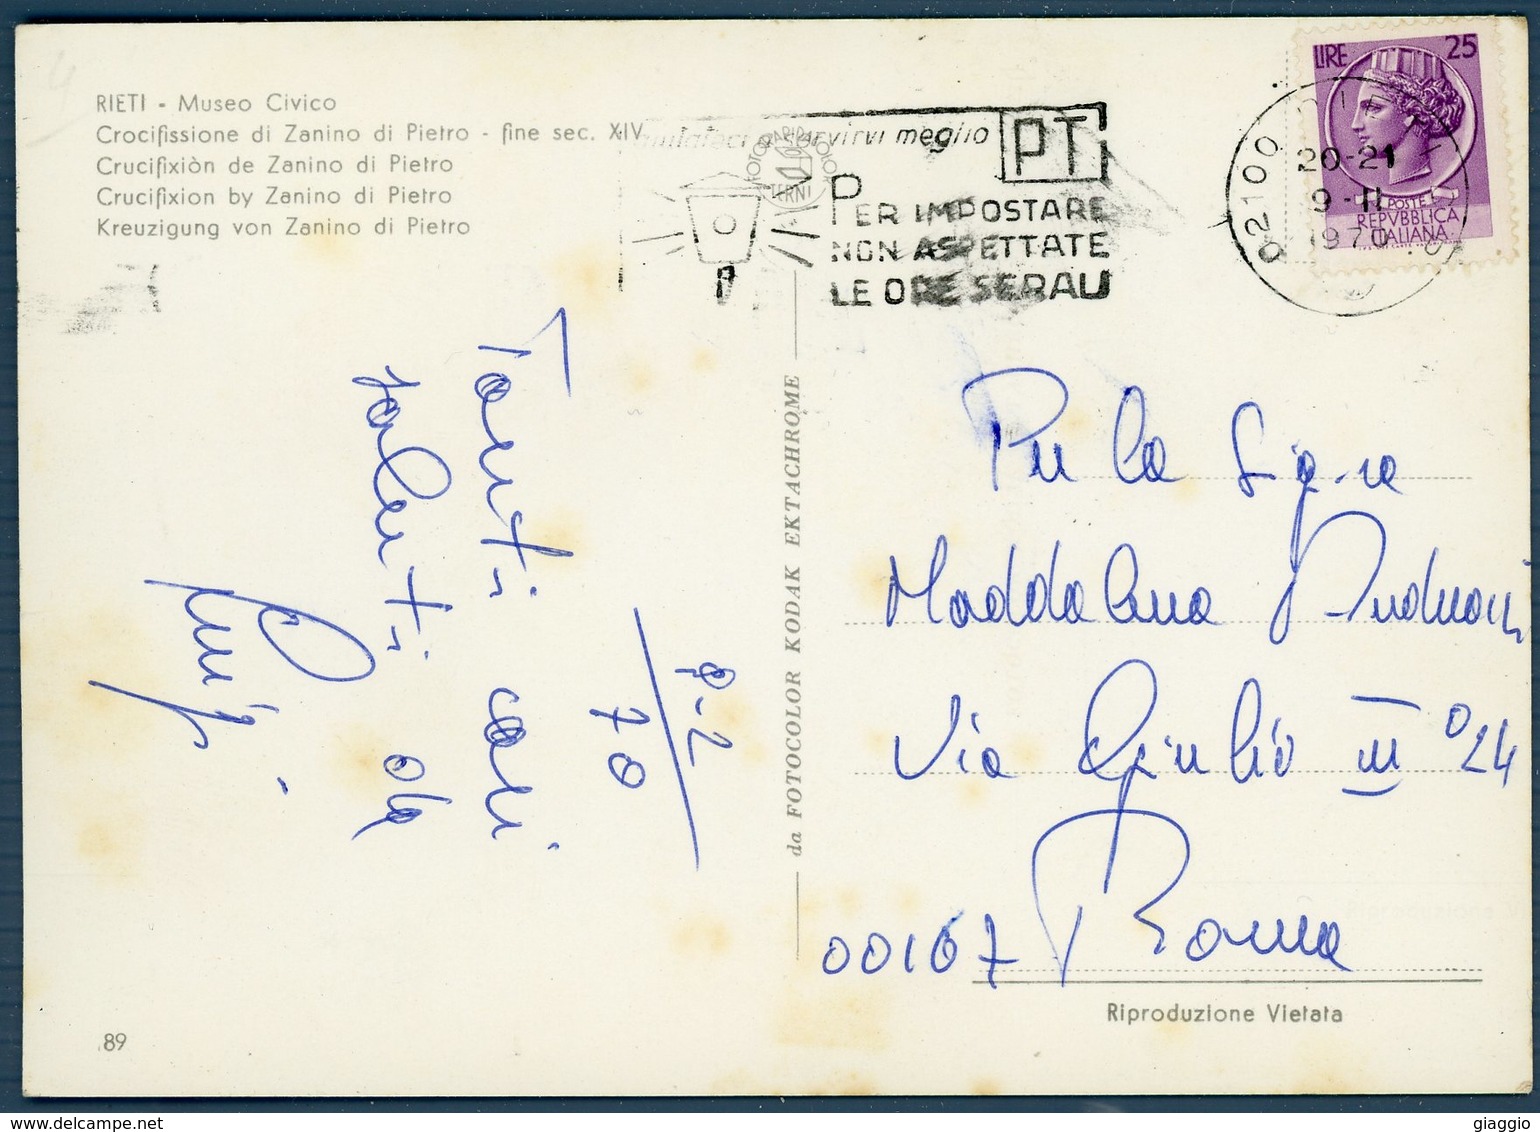 RIETI - Museo Civico
Crocifissione di Zanino di Pietro - fine sec. XIV
Crucifixiòn de Zanino di Pietro
Crucifixion by Zanino di Pietro
Kreuzigung von Zanino di Pietro
a servirvi meglio
PT
PER IMPOSTARE
NON ASPETTATE
LE ORE SERALI
TERNI
LIRE 25
POSTE
REPVBBLICA
ITALIANA
02100
20-21
9-II
1970
9-2
70
Tanti cari
saluti da
Luigi
da FOTOCOLOR KODAK EKTACHROME
Per la Sig.ra
Maddalena
Via Giulio III° 24
00167 Roma
Riproduzione Vietata
89
giaggio